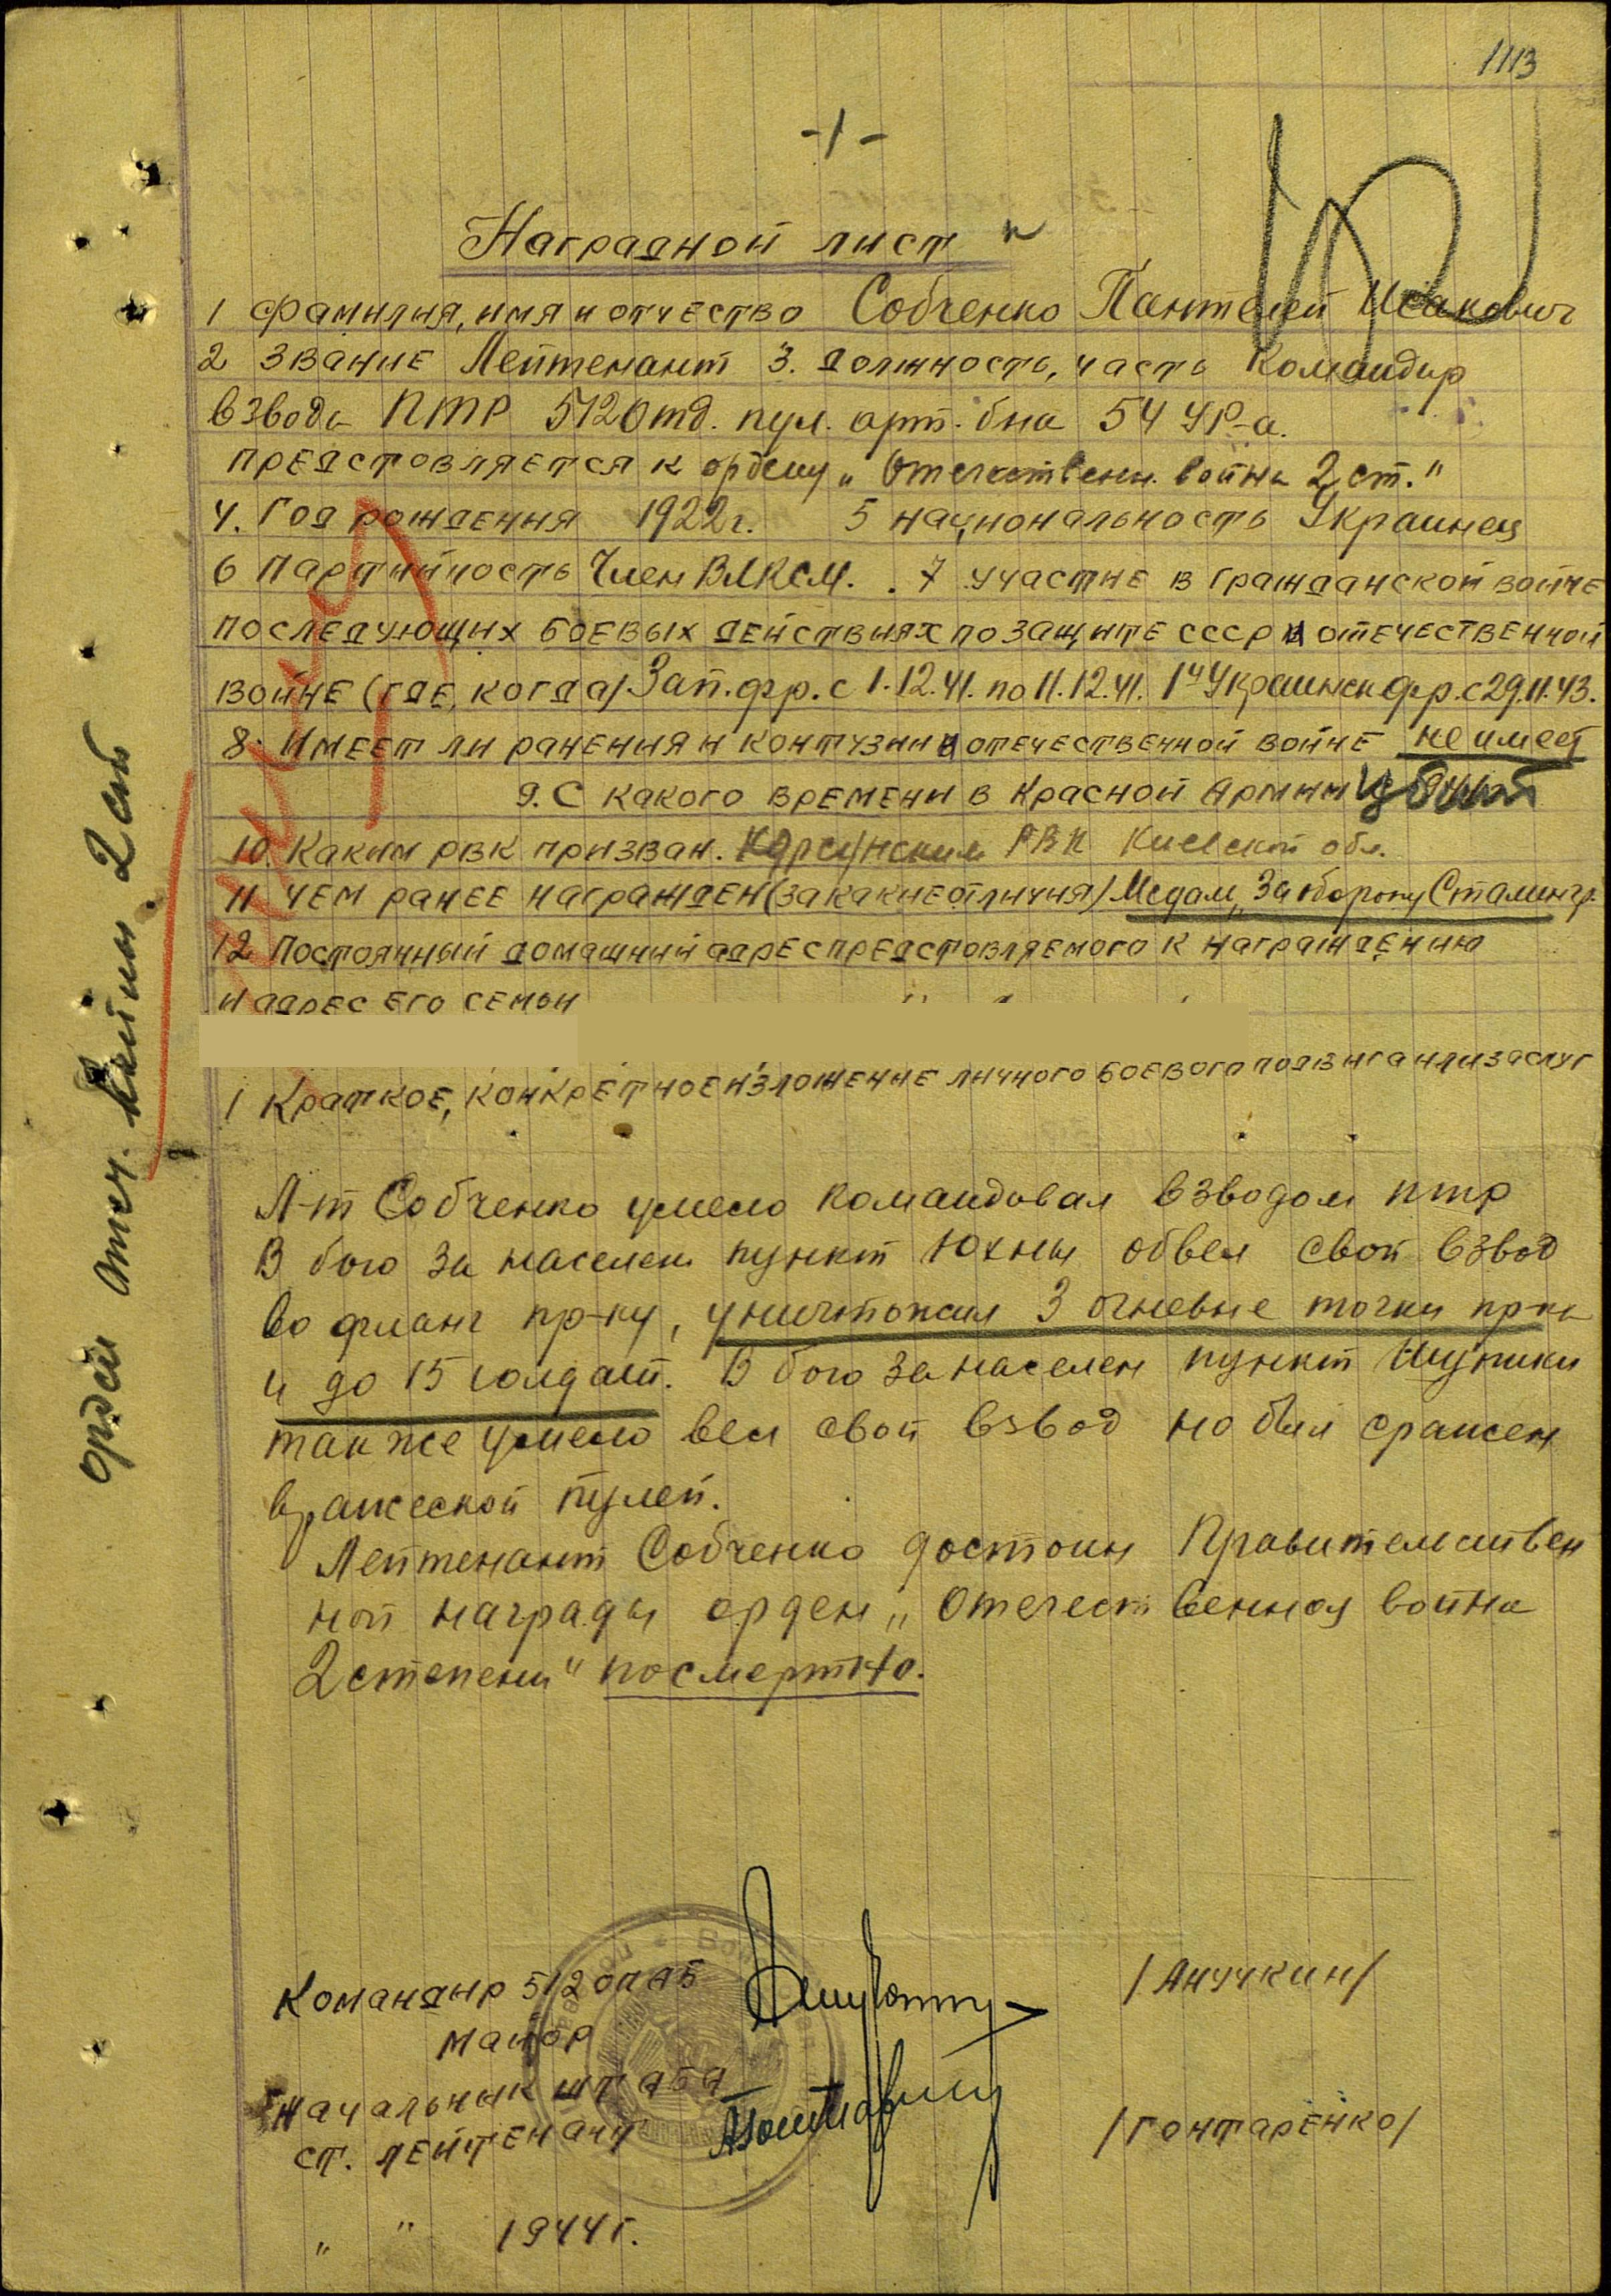 1113
-1-
Наградной лист
1 Фамилия, имя и отчество Собченко Пантелей Исакович
2 Звание Лейтенант 3. Должность, часть Командир
взвода ПТР 512 Отд. пул. арт. б-на 54 УР-а.
предстовляется к ордену „Отечествени. войны 2 ст."
4. Год рождения 1922 г. 5 национальность Украинец
6 Партийность Член ВЛКСМ. 7 участие в гражданской войне
последующих боевых действиях по защите СССР и отечественной
войне (где, когда) Зап. фр. с 1.12.41. по 11.12.41. 1й Украинск фр. с 29.11.43.
8. Имеет ли ранения и контузии в отечественной войне не имеет
9. С какого времени в Красной Армии убит
10. Каким РВК призван. Корсунским РВК Киевской обл.
11 Чем ранее награжден (за какие отличия) Медаль „За оборону Сталингр.
12 Постоянный домашний адрес предстовляемого к награждению
и адрес его семьи
1 Краткое, конкретное изложение личного боевого подвига или заслуг
Л-т Собченко умело командовал взводом птр
В бою за населен пункт Юхны обвел свой взвод
во фланг пр-ку, уничтожил 3 огневые точки пр-ка
и до 15 солдат. В бою за населен пункт
также умело вел свой взвод но был сражен
вражеской пулей.
Лейтенант Собченко достоин Правительствен
ной награды орден „Отечественная война
2 степени" посмертно.
Командир 512 опаб
майор /Анучкин/
Начальник штаба
ст. лейтенант /Гонтаренко/
„ " 1944 г.
орден отеч. войны 2 ст